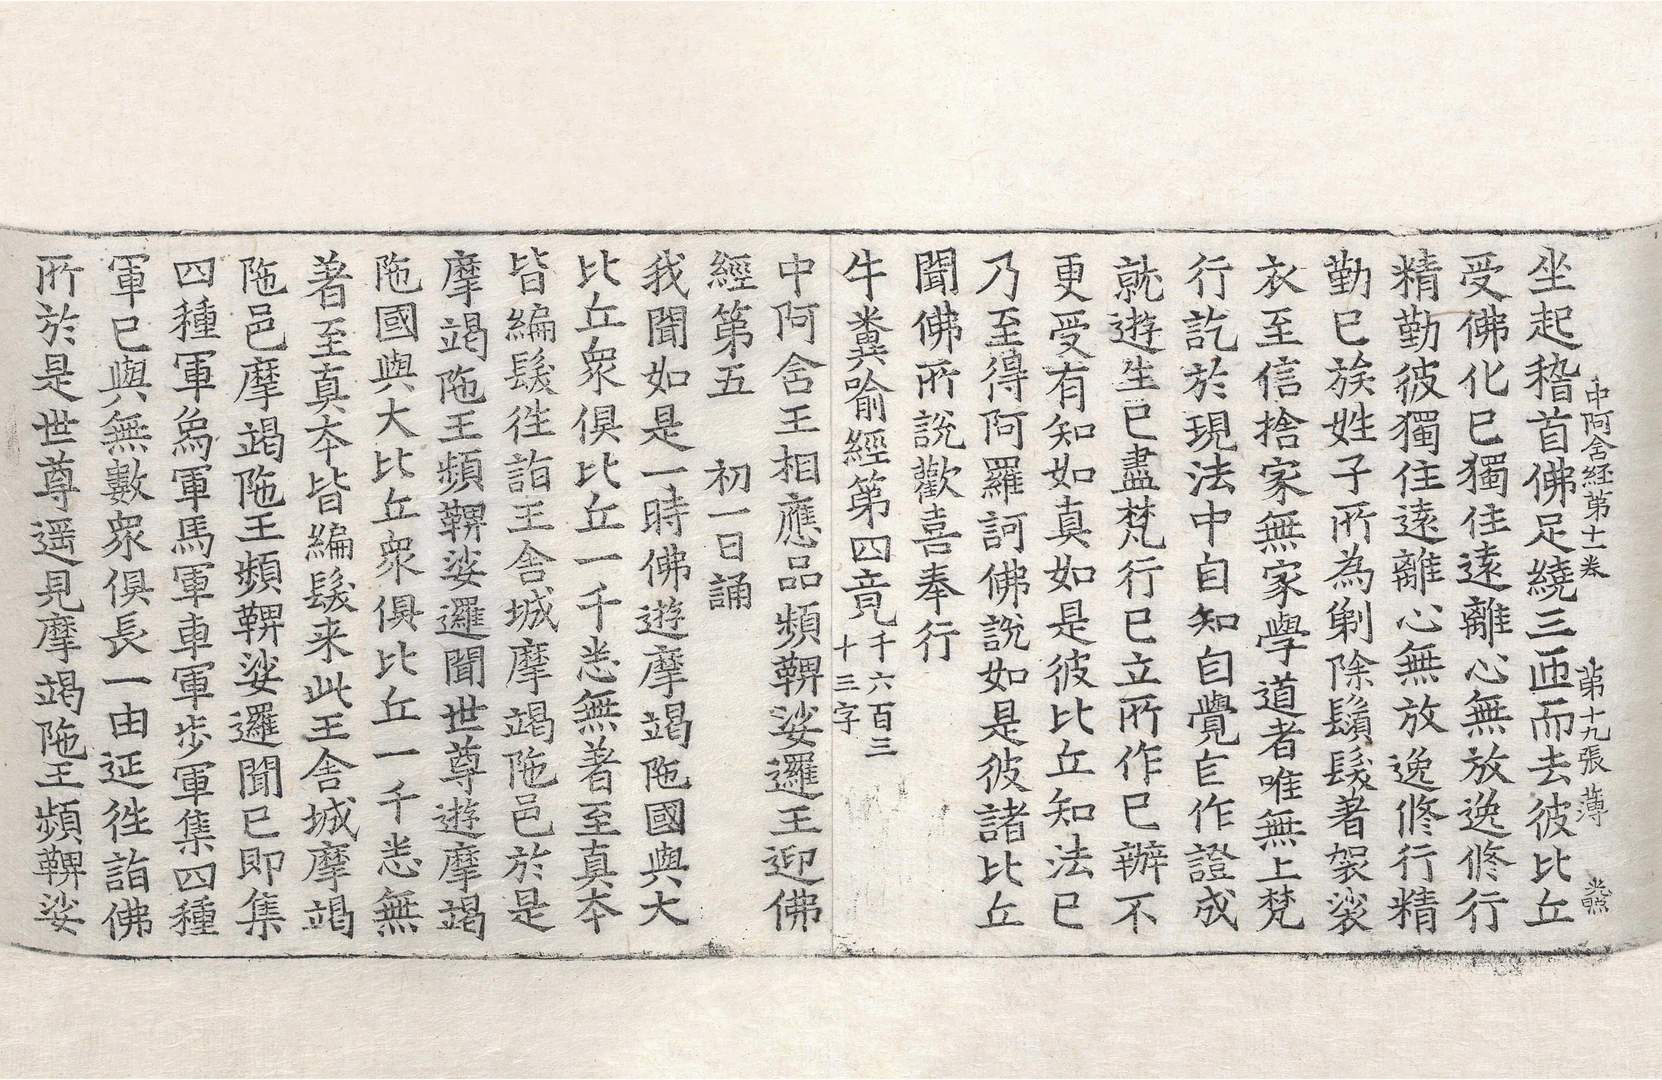 中阿含経第十一巻 第十九張 薄
坐起稽首佛足繞三匝而去彼比丘
受佛化已獨住遠離心無放逸修行
精勤彼獨住遠離心無放逸修行精
勤已族姓子所為剃除鬚髮著袈裟
衣至信捨家無家學道者唯無上梵
行訖於現法中自知自覺自作證成
就遊生已盡梵行已立所作已辦不
更受有知如真如是彼比丘知法已
乃至得阿羅訶佛說如是彼諸比丘
聞佛所說歡喜奉行
牛糞喻經第四竟千六百三
十三字
中阿含王相應品頻鞞娑邏王迎佛
經第五 初一日誦
我聞如是一時佛遊摩竭陁國與大
比丘衆俱比丘一千悉無著至真夲
皆編髮徃詣王舍城摩竭陁邑於是
摩竭陁王頻鞞娑邏聞世尊遊摩竭
陁國與大比丘衆俱比丘一千悉無
著至真夲皆編髮来此王舍城摩竭
陁邑摩竭陁王頻鞞娑邏聞已即集
四種軍象軍馬軍車軍步軍集四種
軍已與無數衆俱長一由延徃詣佛
所於是世尊遥見摩竭陁王頻鞞娑